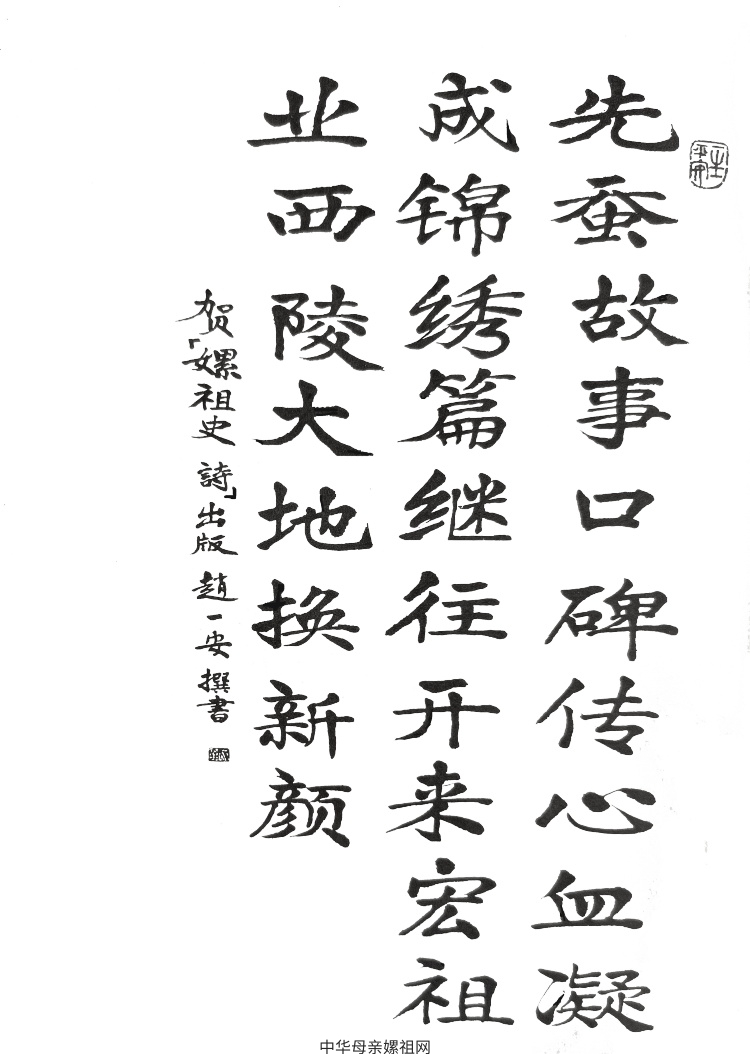 先蚕故事口碑传心血凝
成锦绣篇继往开来宏祖
业西陵大地换新颜
贺「嫘祖史詩」出版 趙一安撰書
中华母亲嫘祖网